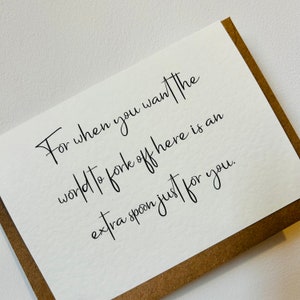 For when you want the
world to fork off here is an
extra spoon just for you.